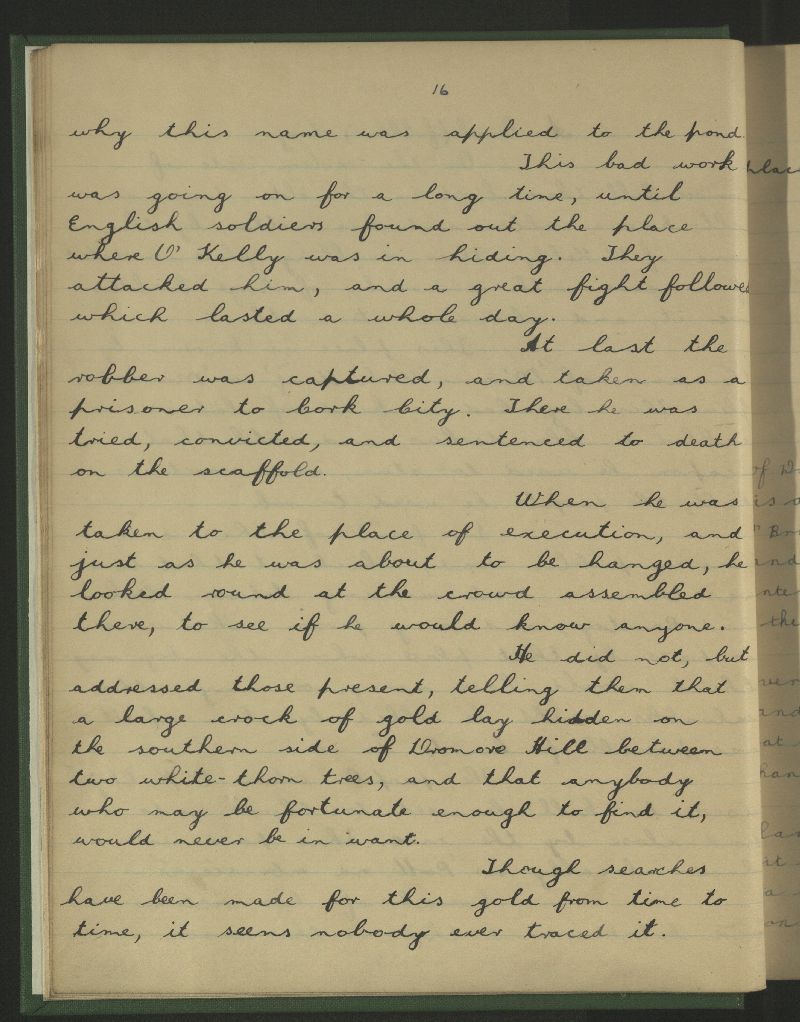 16
why this name was applied to the pond.
This bad work
was going on for a long time, until
English soldiers found out the place
where O' Kelly was in hiding. They
attacked him, and a great fight followed
which lasted a whole day.
At last the
robber was captured, and taken as a
prisoner to Cork City. There he was
tried, convicted, and sentenced to death
on the scaffold.
When he was
taken to the place of execution, and
just as he was about to be hanged, he
looked round at the crowd assembled
there, to see if he would know anyone.
He did not, but
addressed those present, telling them that
a large crock of gold lay hidden on
the southern side of Dromore Hill between
two white-thorn trees, and that anybody
who may be fortunate enough to find it,
would never be in want.
Though searches
have been made for this gold from time to
time, it seems nobody ever traced it.